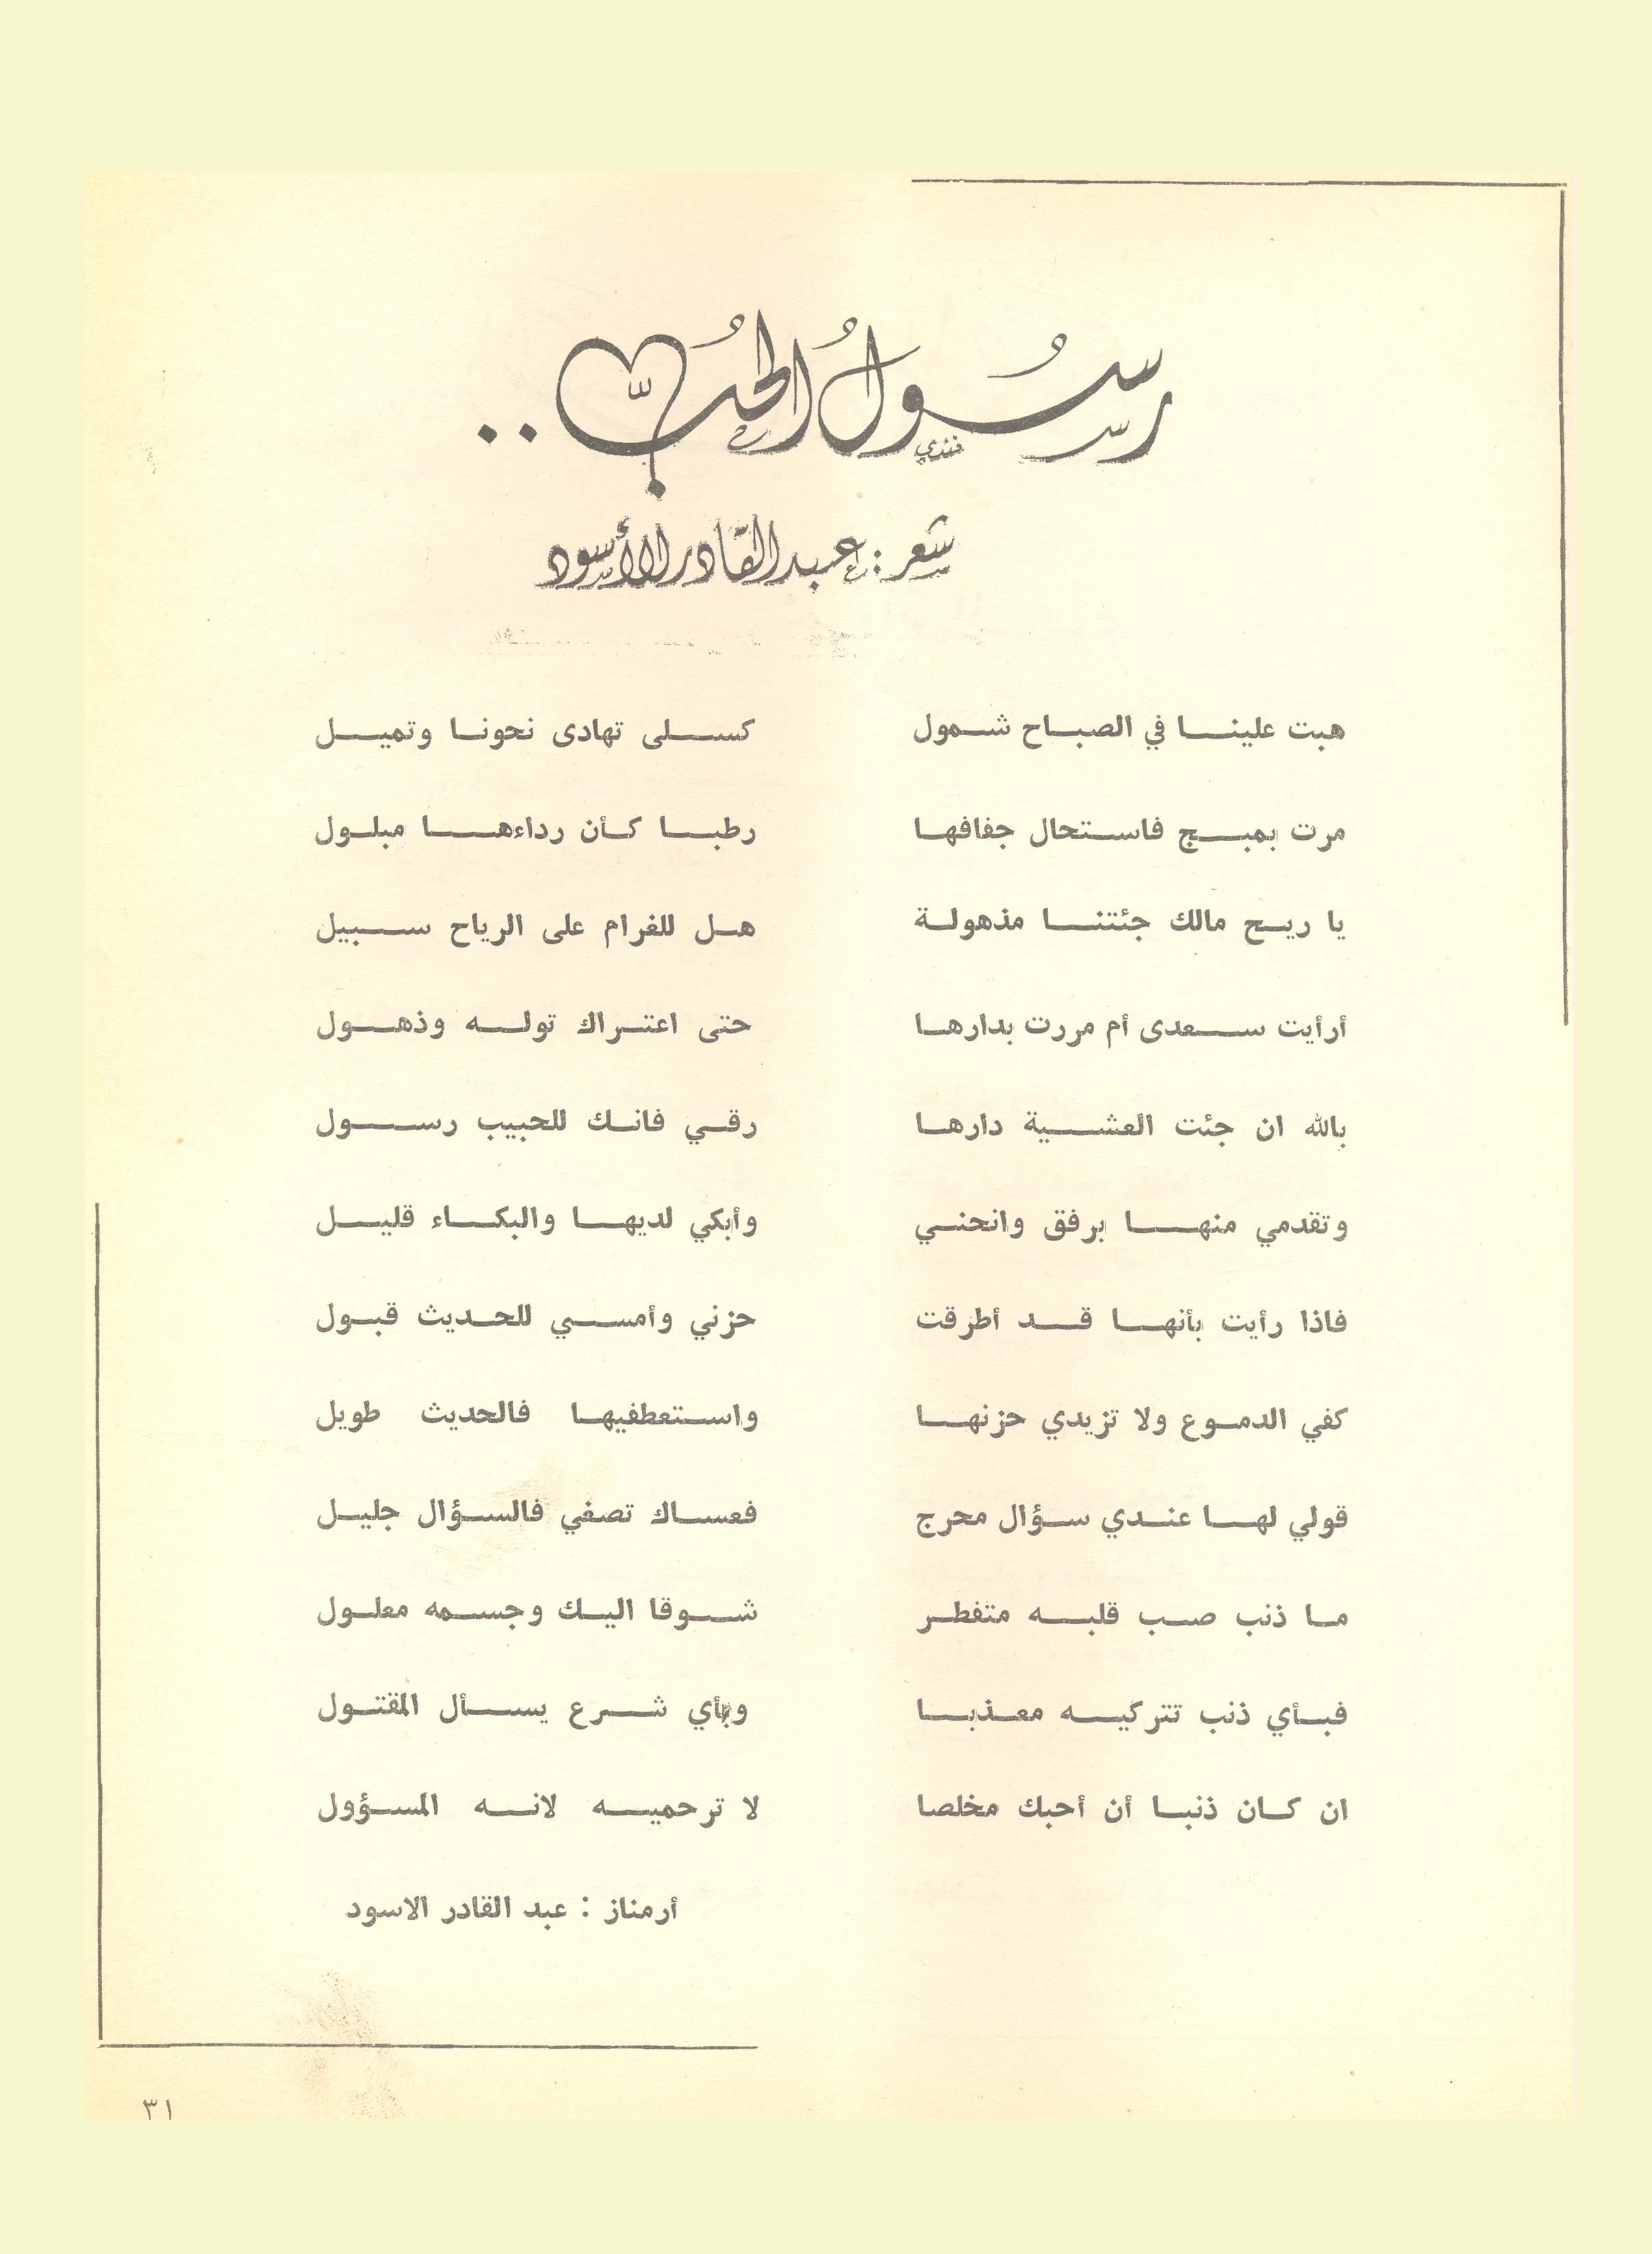 رسُولُ الحُبّ ..
فندي
شعر : عبد القادر الأسود
هبت علينا في الصباح شمول كسلى تهادى نحونا وتميل
مرت بمبج فاستحال جفافها رطبا كأن رداءها مبلول
يا ريح مالك جئتنا مذهولة هل للغرام على الرياح سبيل
أرأيت سعدى أم مررت بدارها حتى اعتراك توله وذهول
بالله ان جئت العشية دارها رقي فانك للحبيب رسول
وتقدمي منها برفق وانحني وأبكي لديها والبكاء قليل
فاذا رأيت بأنها قد أطرقت حزني وأمسي للحديث قبول
كفي الدموع ولا تزيدي حزنها واستعطفيها فالحديث طويل
قولي لها عندي سؤال محرج فعساك تصغي فالسؤال جليل
ما ذنب صب قلبه متفطر شوقا اليك وجسمه معلول
فبأي ذنب تتركيه معذبا وبأي شرع يسأل المقتول
ان كان ذنبا أن أحبك مخلصا لا ترحميه لانه المسؤول
أرمناز : عبد القادر الاسود
٣١